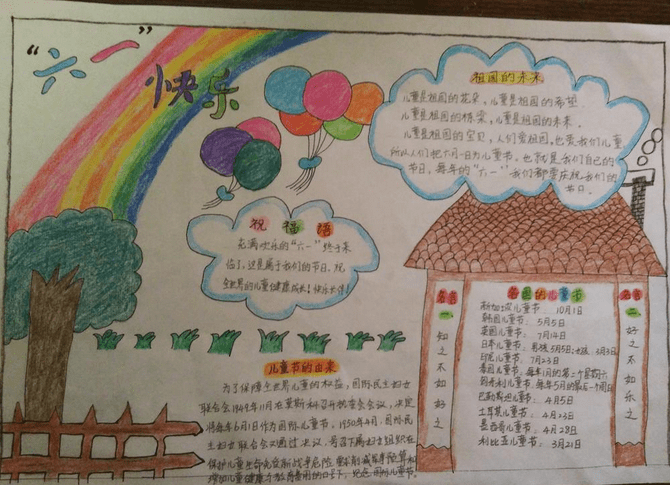 “六一”
快乐
祖国的未来
儿童是祖国的花朵，儿童是祖国的希望
儿童是祖国的栋梁，儿童是祖国的未来。
儿童是祖国的宝贝，人们爱祖国，也爱我们儿童
所以人们把六月一日为儿童节，也就是我们自己的
节日，每年的“六一”，我们都要庆祝我们的
节日。
祝福语
充满欢乐的“六一”终于来
临了，这是属于我们的节日，祝
全世界的儿童健康成长！快乐长伴！
儿童节的由来
为了保障全世界儿童的权益，国际民主妇女
联合会1949年11月在莫斯科召开执委会会议，决定
将每年6月1日作为国际儿童节，1950年4月，国际民
主妇女联合会又通过决议，号召下属妇女组织在
保护儿童生命，反新战争危险
增加儿童健康与教育费用的口号下，纪念国际儿童节。
名言
一、
知之不如好之
各国的儿童节
新加坡儿童节：10月1日
韩国儿童节：5月5日
英国儿童节：7月14日
日本儿童节：男孩5月5日；女孩3月3日
印度儿童节：7月23日
泰国儿童节：每年1月的第二个星期六
匈牙利儿童节：每年5月的最后一个周日
巴勒斯坦儿童节：4月5日
土耳其儿童节：4月23日
墨西哥儿童节：4月28日
利比亚儿童节：3月21日
名言
二、
好之不如乐之